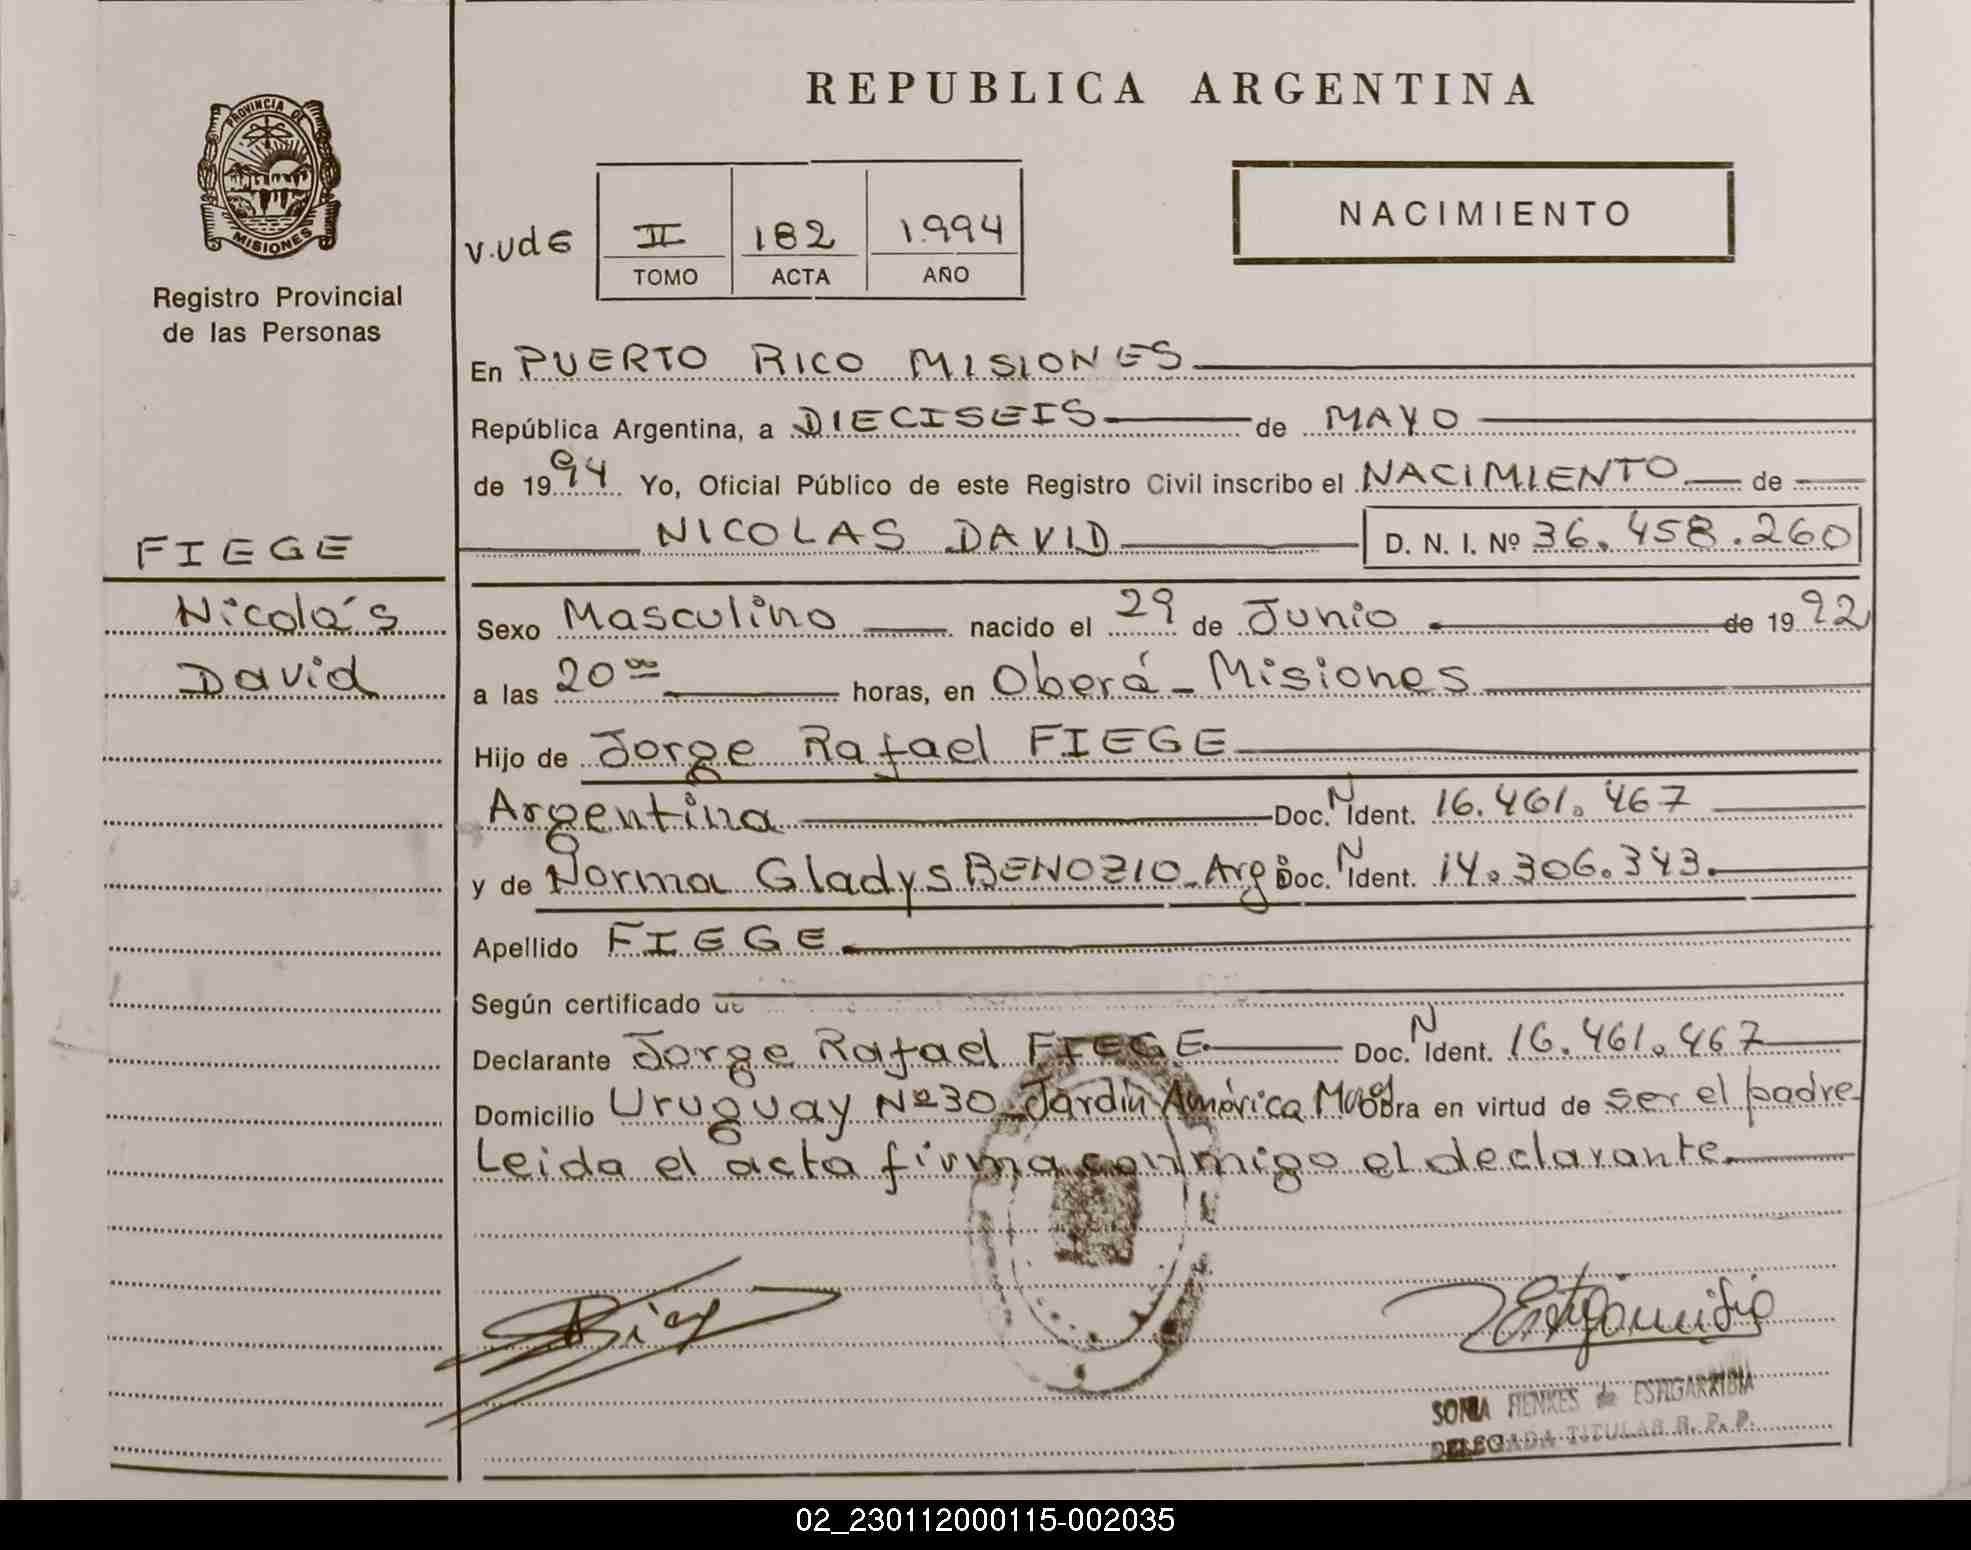 PROVINCIA DE
MISIONES
Registro Provincial
de las Personas
REPUBLICA ARGENTINA
II 182 1994
TOMO ACTA AÑO
NACIMIENTO
En PUERTO RICO MISIONES
República Argentina, a DIECISEIS de MAYO
de 1994 Yo, Oficial Público de este Registro Civil inscribo el NACIMIENTO de
NICOLAS DAVID D. N. I. Nº 36.458.260
FIEGE
Nicolás
David
Sexo Masculino nacido el 29 de Junio de 1992
a las 20 horas, en Oberá - Misiones
Hijo de Jorge Rafael FIEGE
Argentina Doc. N Ident. 16.461.467
y de Norma Gladys BENOZIO - Arg Doc. N Ident. 14.306.343.
Apellido FIEGE
Según certificado de
Declarante Jorge Rafael FIEGE Doc. N Ident. 16.461.467
Domicilio Uruguay Nº 30 - Jardín América Obra en virtud de ser el padre
Leida el acta firma conmigo el declarante
SONIA HENKES de ESTIGARRIBIA
DELEGADA TITULAR R. P. P.
02_230112000115-002035